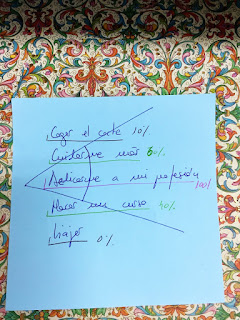 Coger el coche 10%
Cuidarme más 60%
Dedicarme a mi profesión
100%
Hacer un curso
Viajar 0%